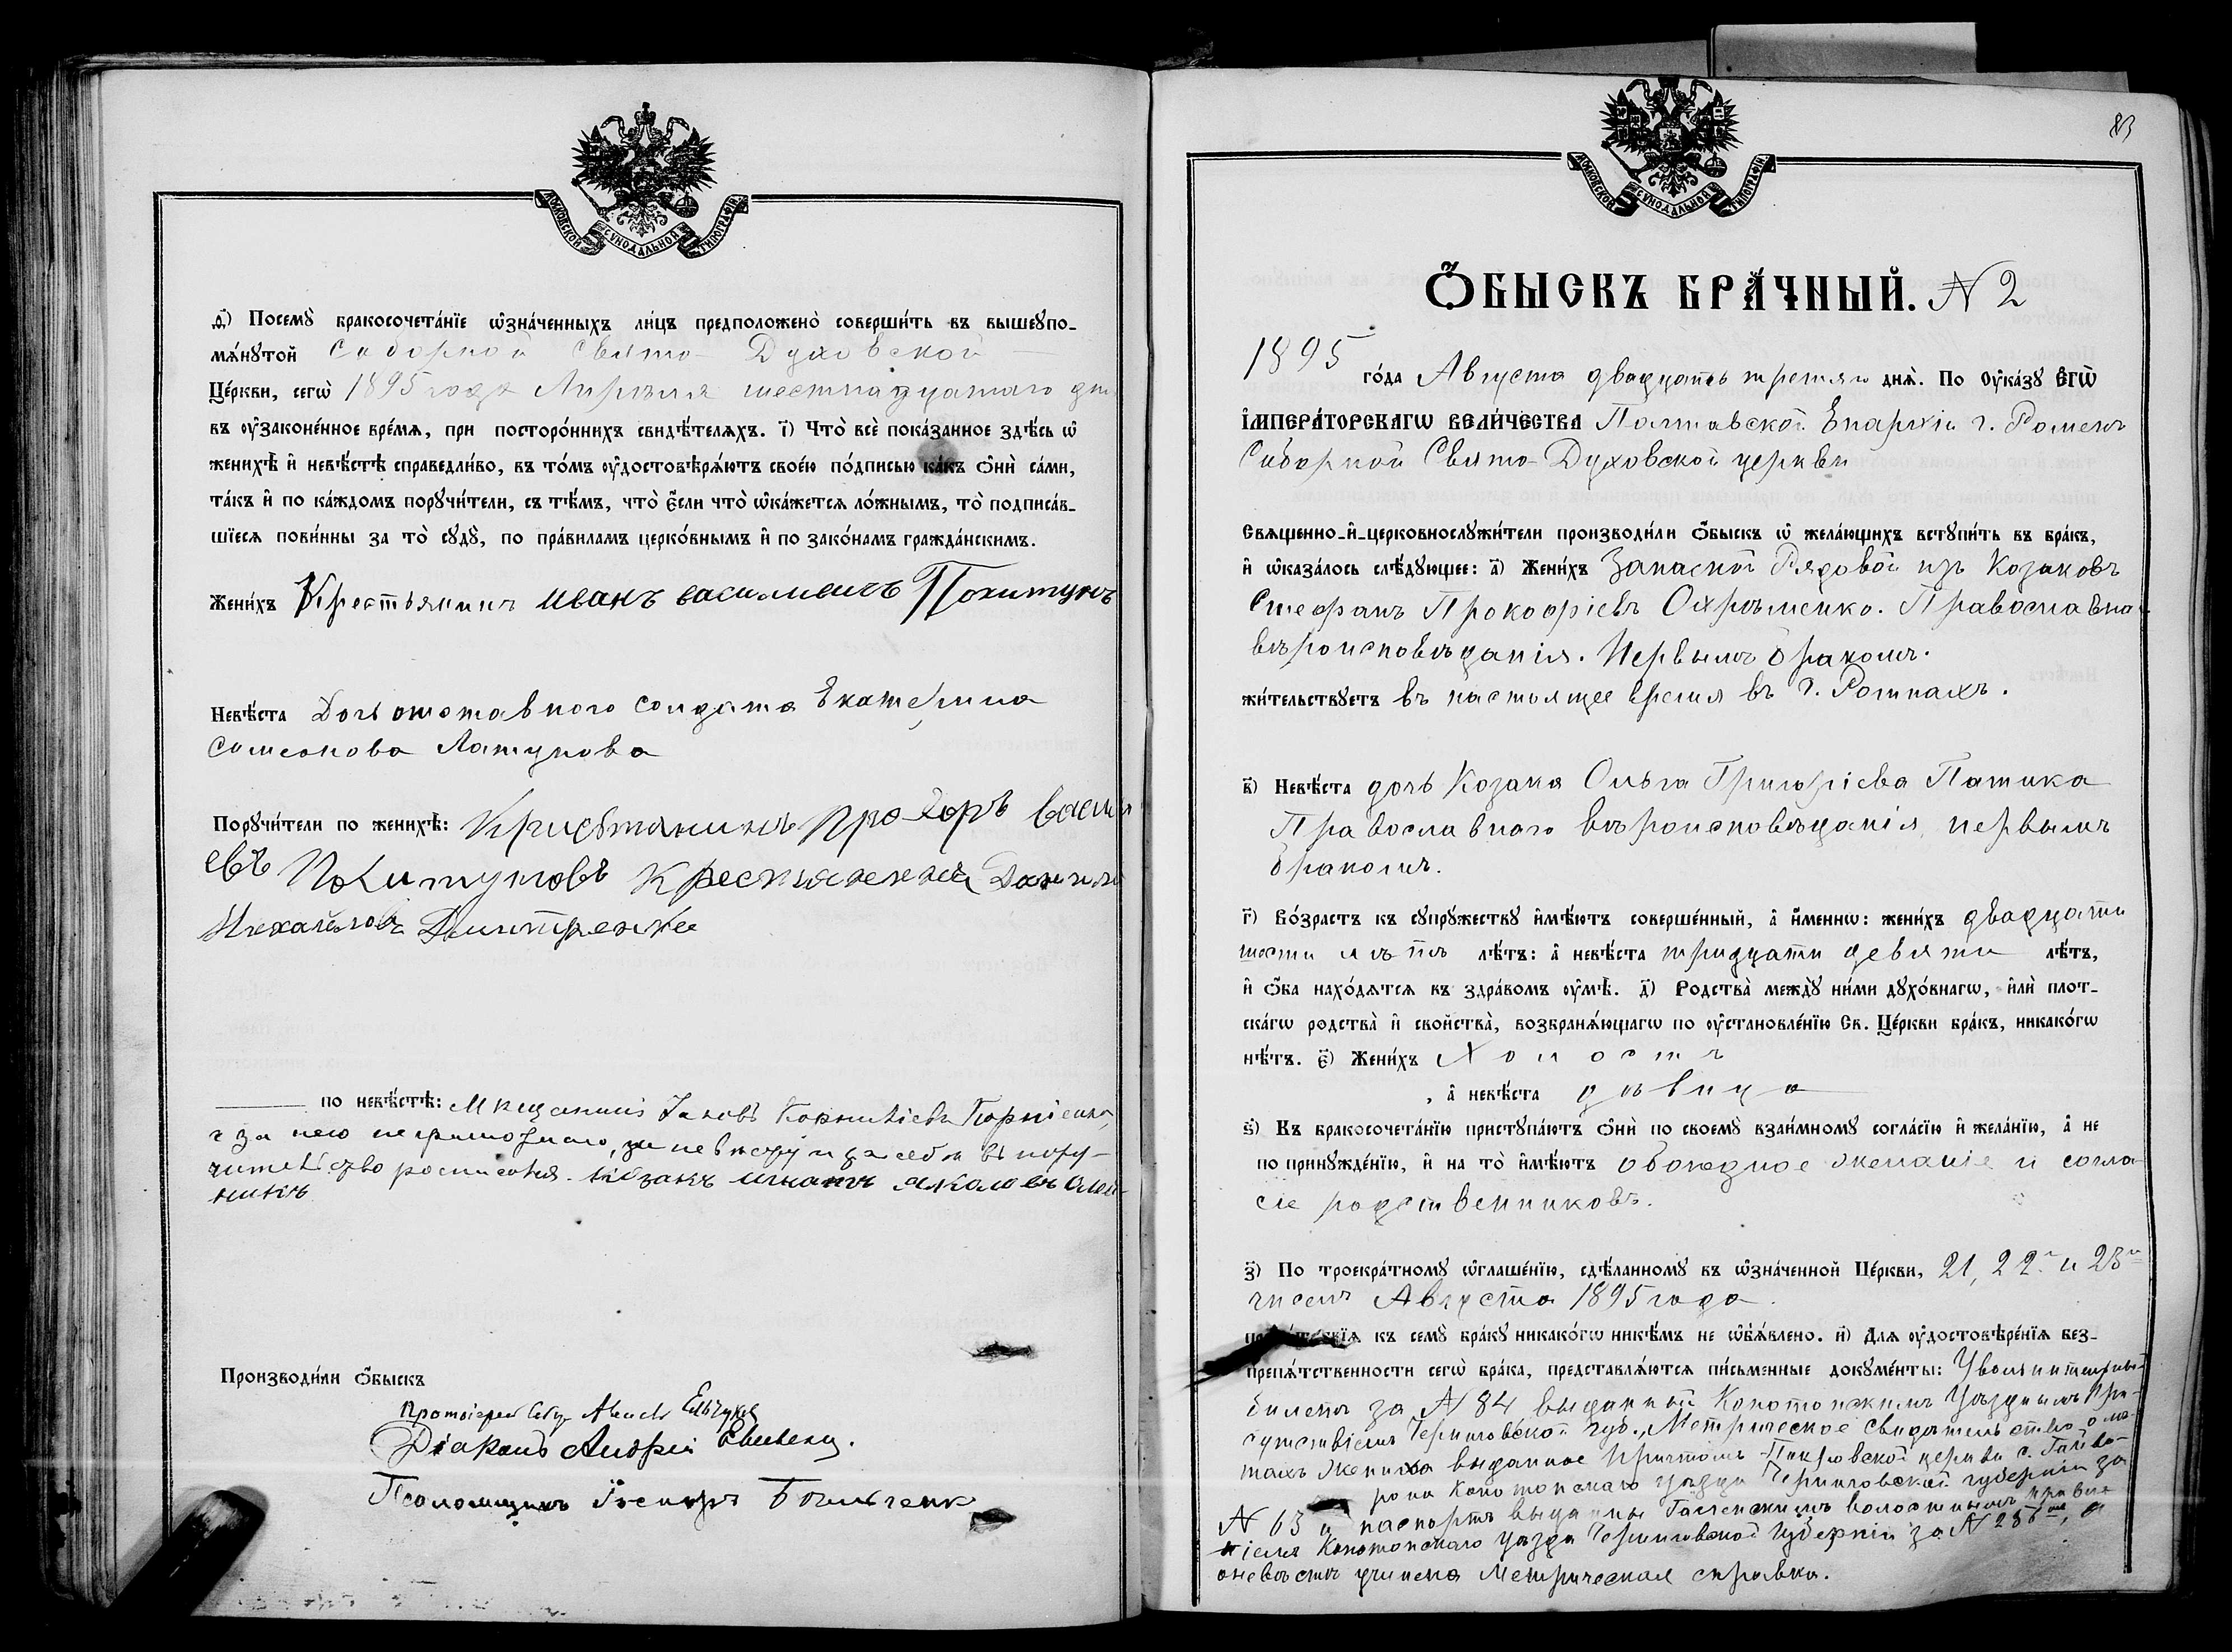 МОСКОВСКОЙ СѴНОДАЛЬНОЙ ТИПОГРАФІИ
д҃) Посемꙋ̀ бракосочета́нїе ѡ҆зна́ченныхъ ли́цъ предположено̀ соверши́ть въ вышеꙋпо-
мѧ́нꙋтой Соборной Свято-Духовской
Це́ркви, сегѡ̀ 1895 года Апрѣля шестнадцатаго дня
въ ᲂу҆законе́нное вре́мѧ, при посторо́ннихъ свидѣ́телѧхъ. і҃) Что̀ всѐ пока́занное здѣ́сь ѡ҆
женихѣ̀ и҆ невѣ́стѣ справедли́во, въ то́мъ ᲂу҆достовѣрѧ́ютъ свое́ю по́дписью ка́къ ѻ҆нѝ са́ми,
та́къ и҆ по ка́ждомъ порꙋчи́тели, съ тѣ́мъ, что̀ є҆́сли что̀ ѡ҆ка́жетсѧ ло́жнымъ, то̀ подписа́в-
шїесѧ пови́нны за то̀ сꙋдꙋ̀, по пра́виламъ церко́внымъ и҆ по зако́намъ гражда́нскимъ.
Жени́хъ Крестьянинъ Иванъ василиевичъ Похитунъ
Невѣ́ста Дочь отставного солдата Екатерина
Симеонова Латунова
Порꙋчи́тели по женихѣ̀: Крисьтянинъ прохоръ васил
евъ Похитуновъ Крестьянинъ Данило
Михайловъ Дмитренко
по невѣ́стѣ: Мещанинъ Іаковъ Корниліевъ Корніенко,
а за него неграмотнаго, за невѣсту и за себя въ пору-
чительство росписался. козакъ игнатъ яковлевъ олей-
никъ
Производи́ли ѻ҆́быскъ
Протоіерей
Діаконъ Андрей
Псаломщикъ
МОСКОВСКОЙ СѴНОДАЛЬНОЙ ТИПОГРАФІИ
83
Ѻ҆́БЫСКЪ БРА́ЧНЫЙ. N 2
1895 го́да Августа двадцать третьяго днѧ̀. По ᲂу҆ка́зꙋ Є҆ГѠ̀
І҆МПЕРА́ТОРСКАГѠ ВЕЛИ́ЧЕСТВА Полтавской Епархіи г. Роменъ
Соборной Свято-Духовской церкви
Свѧщенно-и҆-церковнослꙋжи́тели производи́ли ѻ҆́быскъ ѡ҆ жела́ющихъ встꙋпи́ть въ бра́къ,
и҆ ѡ҆каза́лось слѣ́дꙋющее: а҃) Жени́хъ Запасной Рядовой изъ Козаковъ
Стефанъ Прокофіевъ Охрѣменко. Православна
вѣроисповѣданія. Первымъ бракомъ.
жи́тельствꙋетъ въ настоящее время въ г. Ромнахъ.
в҃) Невѣ́ста дочь Козака Ольга Григоріева Патика
Православнаго вѣроисповѣданія, первымъ
бракомъ.
г҃) Во́зрастъ къ сꙋпрꙋ́жествꙋ и҆мѣ́ютъ соверше́нный, а҆ и҆́менно: жени́хъ двадцати
шести лѣтъ лѣ́тъ: а҆ невѣ́ста тридцати девяти лѣ́тъ,
и҆ ѻ҆́ба нахо́дѧтсѧ въ здра́вомъ ᲂу҆мѣ̀. д҃) Родства̀ междꙋ̀ ни́ми дꙋхо́внагѡ, и҆лѝ плот-
ска́гѡ родства̀ и҆ сво́йства̀, возбранѧ́ющагѡ по ᲂу҆становле́нїю Св. Це́ркви бра́къ, никако́гѡ
нѣ́тъ. є҃) Жени́хъ Холостъ
, а҆ невѣ́ста дѣвица
ѕ҃) Къ бракосочета́нїю пристꙋпа́ютъ ѻ҆нѝ по своемꙋ̀ взаи́мномꙋ согла́сїю и҆ жела́нїю, а҆ не
по принꙋжде́нїю, и҆ на то̀ и҆мѣ́ютъ обоюдное желаніе и согла-
сіе родственниковъ.
з҃) По троекра́тномꙋ ѡ҆глаше́нїю, сдѣ́ланномꙋ въ ѡ҆зна́ченной Це́ркви, 21, 22 и 23
чиселъ Августа 1895 года.
къ семꙋ̀ бра́кꙋ никако́гѡ никѣ́мъ не ѡ҆б̾ѧ́влено. и҃) Длѧ ᲂу҆достовѣре́нїѧ без-
препѧ́тственности сегѡ̀ бра́ка, представлѧ́ютсѧ пи́сьменные докꙋме́нты: Увольнительный
билетъ за N 84 выданный Конотопскимъ Уѣзднымъ При-
сутствіемъ Черниговской губ., Метрическое свидѣтельство о лѣ-
тахъ жениха выданное Причтомъ Покровской церкви с. Гайво-
рона Конотопскаго уѣзда Черниговской губерніи за
N 63 и паспортъ выданный волостнымъ правле
ніемъ Конотопскаго уѣзда Черниговской губерніи за N 286, а
о невѣстѣ учинена Метрическая справка.